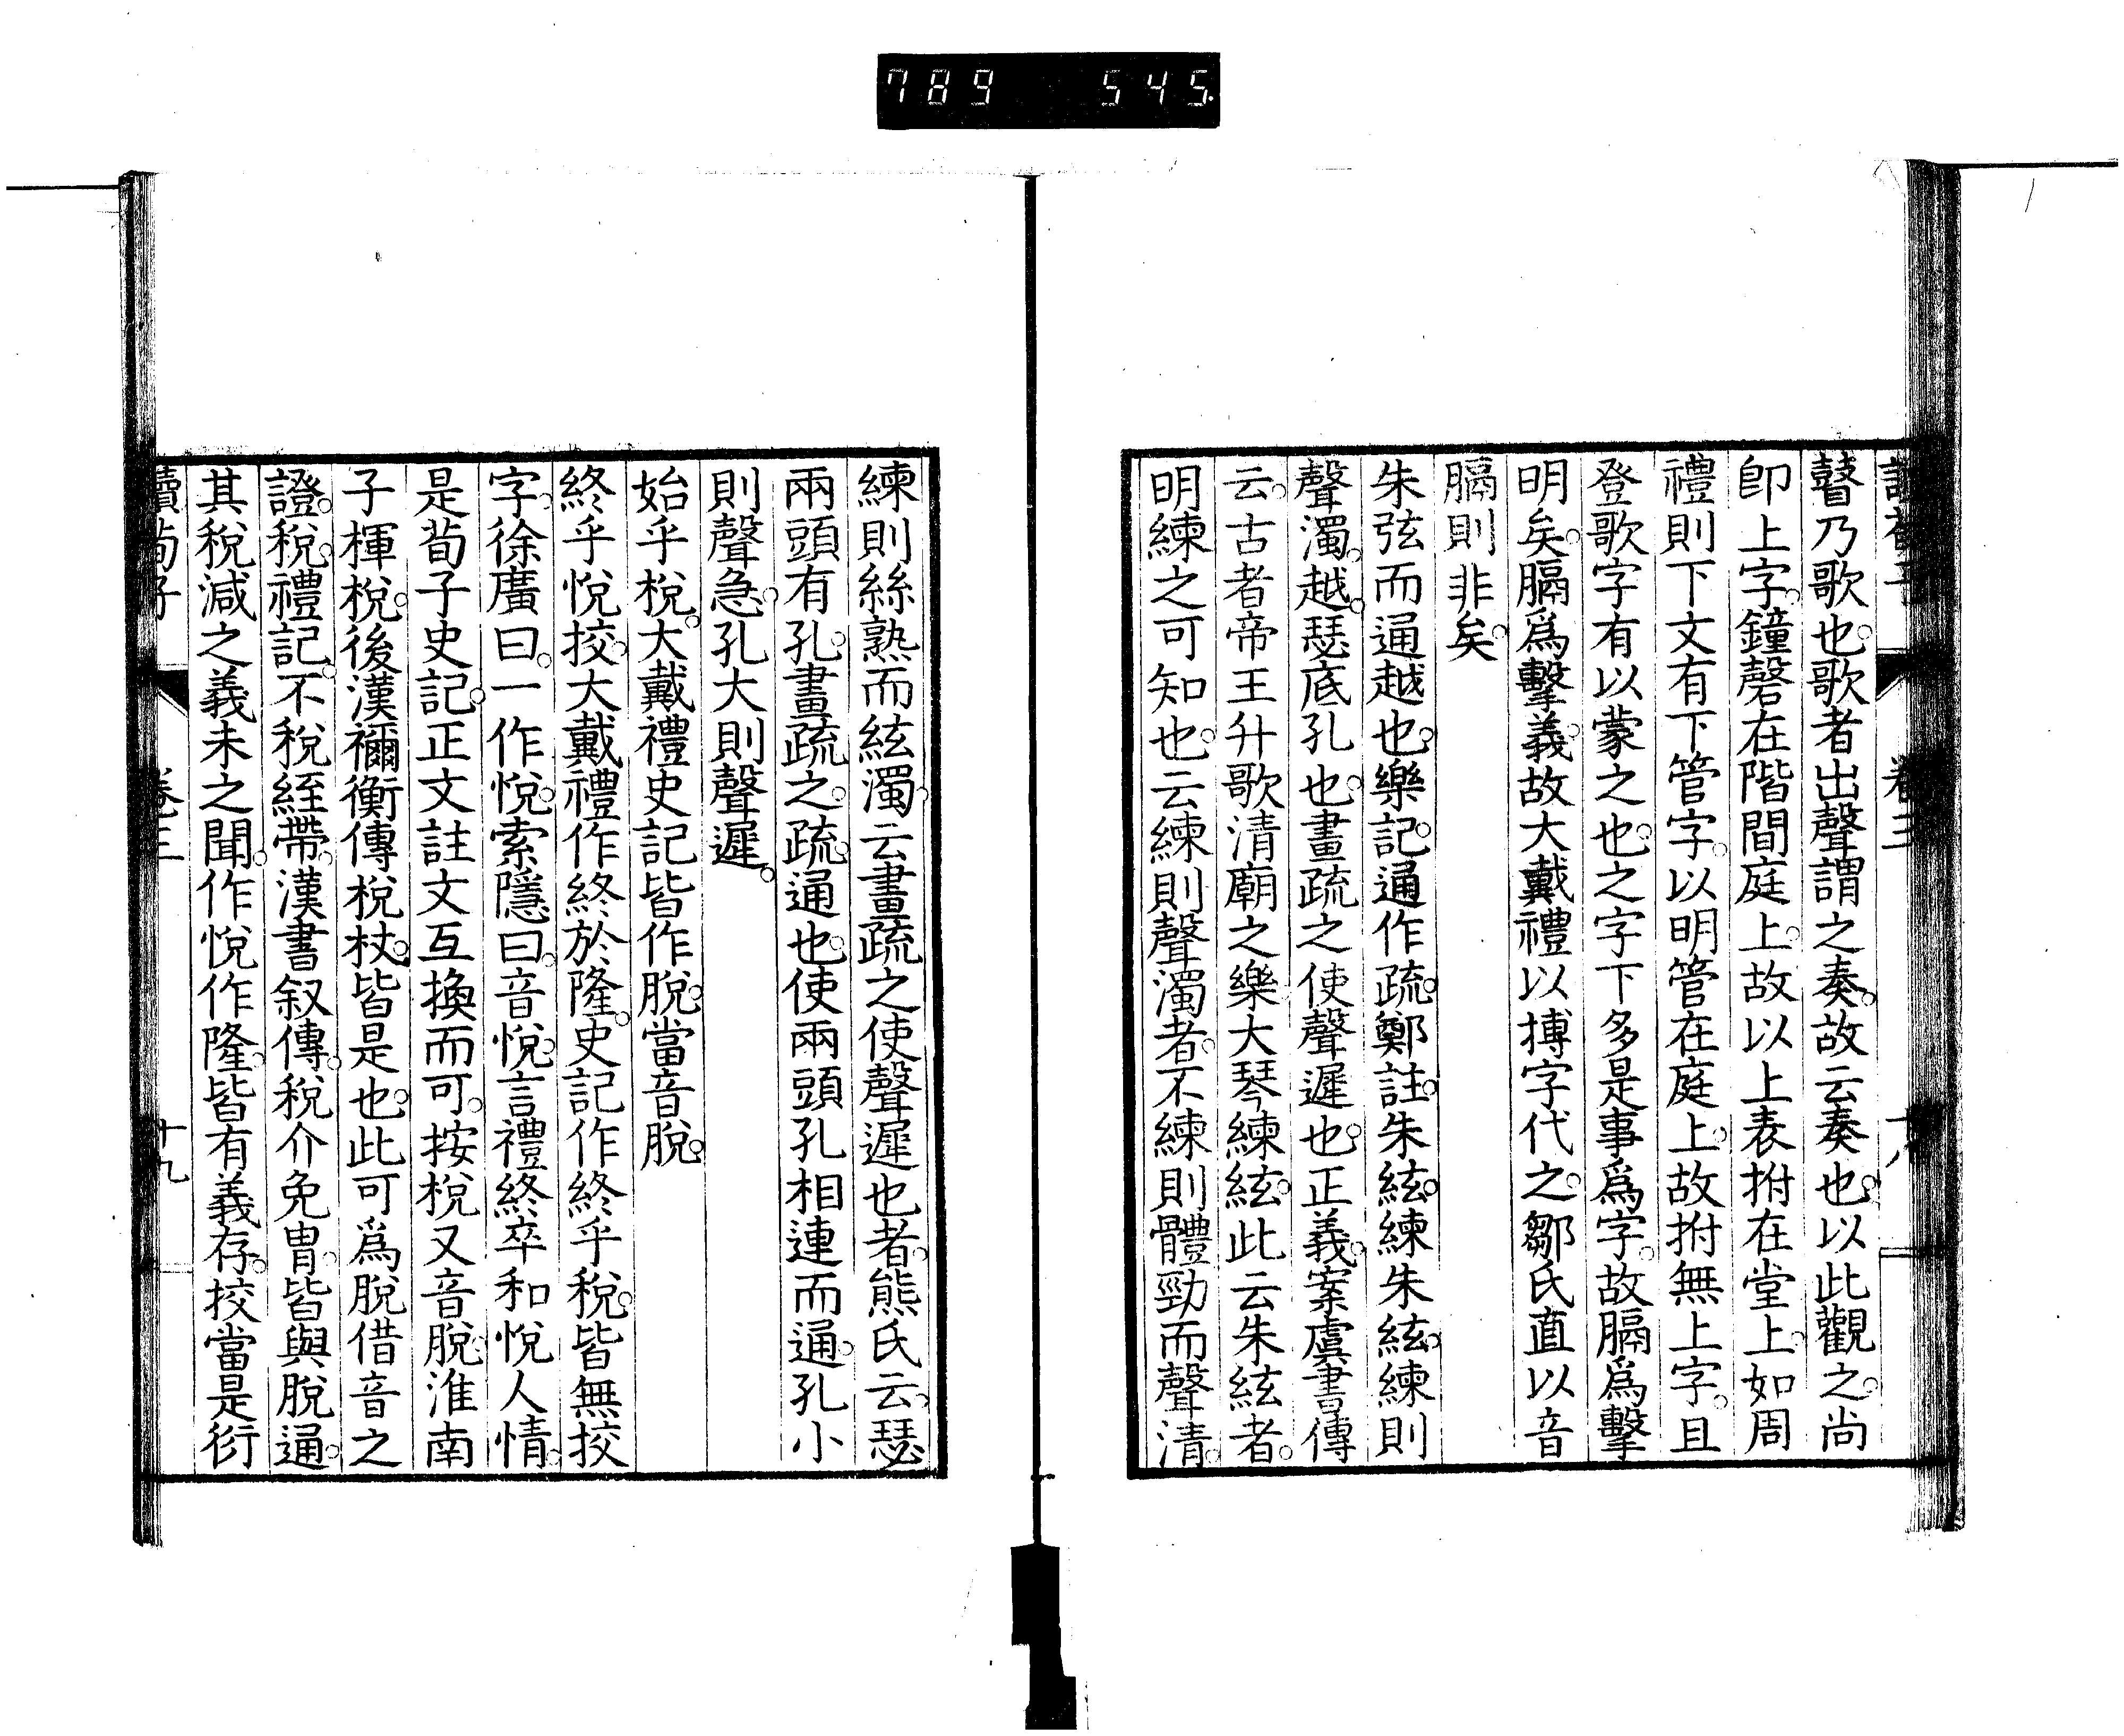 789 545
讀荀子 卷三 十八
瞽乃歌也。歌者出聲謂之奏。故云奏也。以此觀之。尚
卽上字。鐘磬在階間庭上。故以上表拊在堂上。如周
禮則下文有下管字。以明管在庭上。故拊無上字。且
登歌字有以蒙之也。之字下多是事爲字。故膈爲擊
明矣。膈爲擊義。故大戴禮以搏字代之。鄒氏直以音
膈則非矣。
朱弦而通越也。樂記。通作疏。鄭註。朱絃。練朱絃。練則
聲濁。越。瑟底孔也。畫疏之使聲遲也。正義。案虞書傳
云。古者帝王升歌清廟之樂大琴練絃。此云朱絃者。
明練之可知也。云練則聲濁者。不練則體勁而聲清。
練則絲熟而絃濁。云畫疏之使聲遲也者。熊氏云。瑟
兩頭有孔。畫疏之。疏。通也。使兩頭孔相連而通。孔小
則聲急。孔大則聲遲。
始乎梲。大戴禮史記皆作脫。當音脫。
終乎悅挍。大戴禮作終於隆。史記作終乎稅。皆無挍
字。徐廣曰。一作悅。索隱曰。音悅。言禮終卒和悅人情。
是荀子史記。正文註文互換而可。按梲又音脫。淮南
子楎梲。後漢禰衡傳梲杖。皆是也。此可爲脫借音之
證。稅。禮記。不稅絰帶。漢書叙傳。稅介免冑。皆與脫通。
其稅減之義未之聞。作悅作隆。皆有義存。挍當是衍
讀荀子 卷三 十九